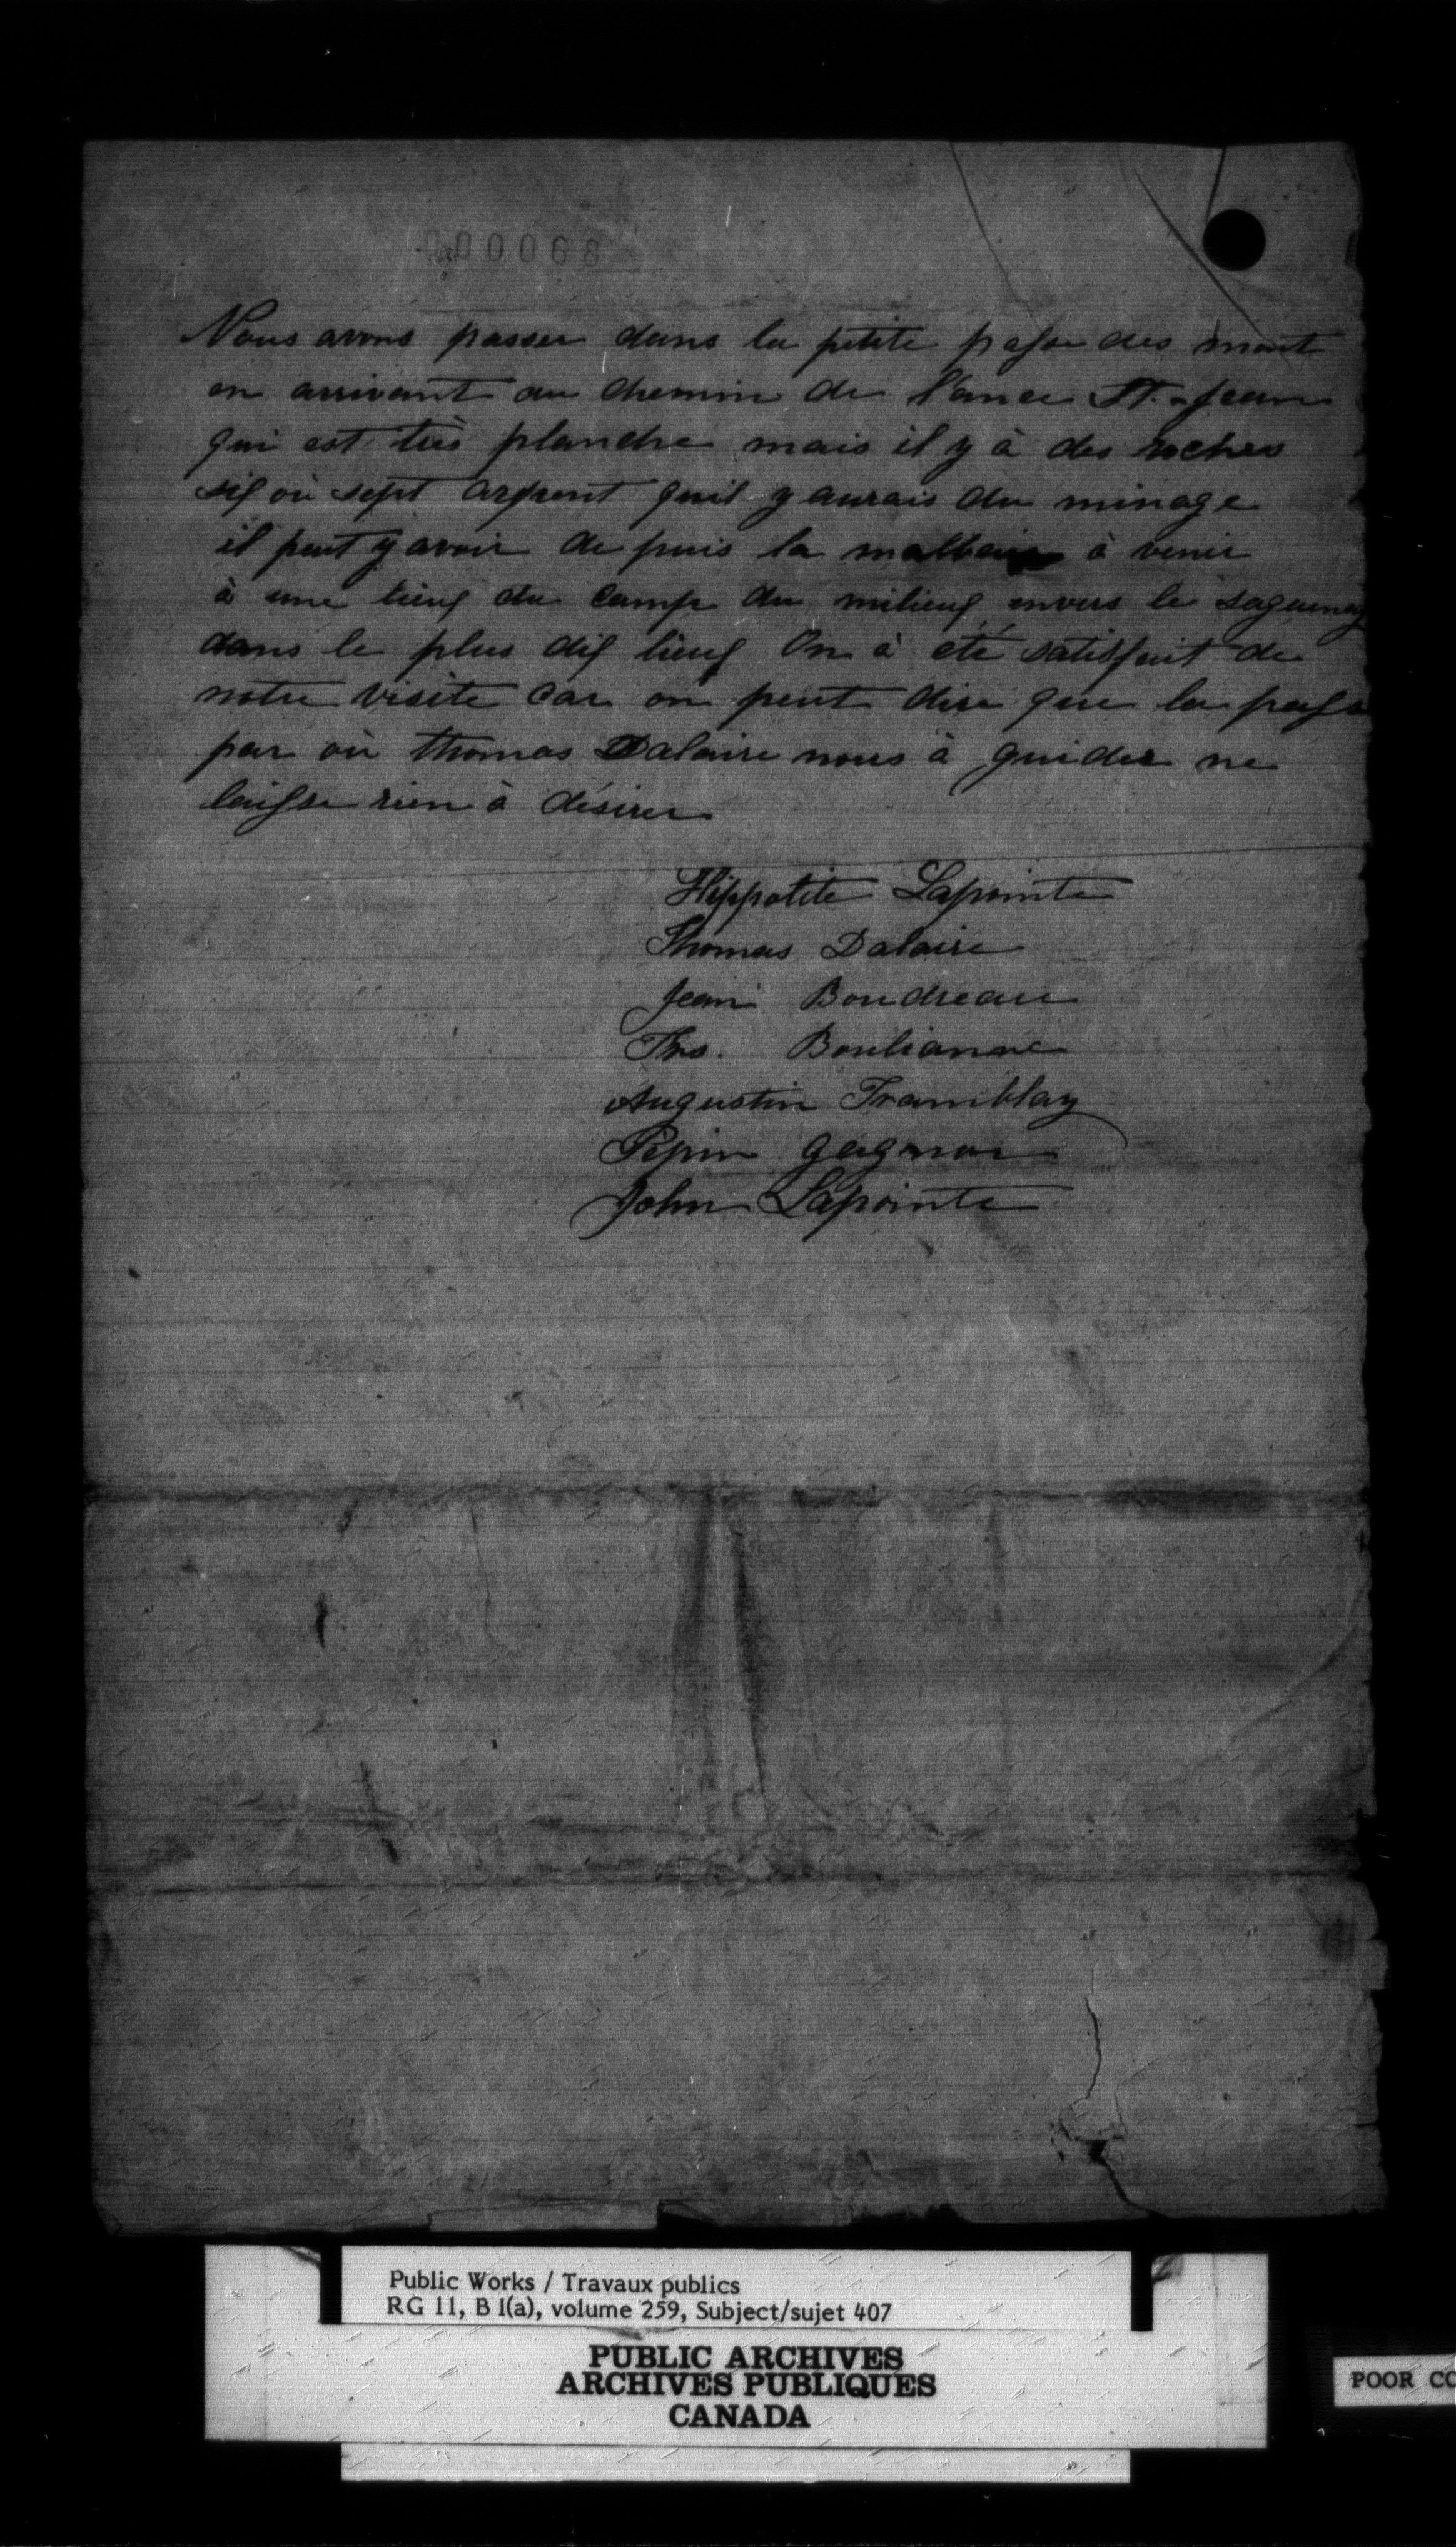 000068
Nous avons passer dans la petite passe des mont
en arrivant au chemin de l'ance St.-Jean
qui est très planche mais il y à des roches
six où sept arpent quil y aurais du minage
il peut y avoir de puis la malbaie à venir
à une lieux du camp du milieux envers le saguenay
dans le plus dix lieux On à été satisfait de
notre visite car on peut dire que la passe
par où thomas Dalaire nous à guider ne
laisse rien à désirer
Hippolite Lapointe
Thomas Dalaire
Jean Boudreau
Ths. Boulianne
Augustin Tramblay
Pépin gagnon
John Lapointe
Public Works / Travaux publics
RG 11, B 1(a), volume 259, Subject/sujet 407
PUBLIC ARCHIVES
ARCHIVES PUBLIQUES
CANADA
POOR CO